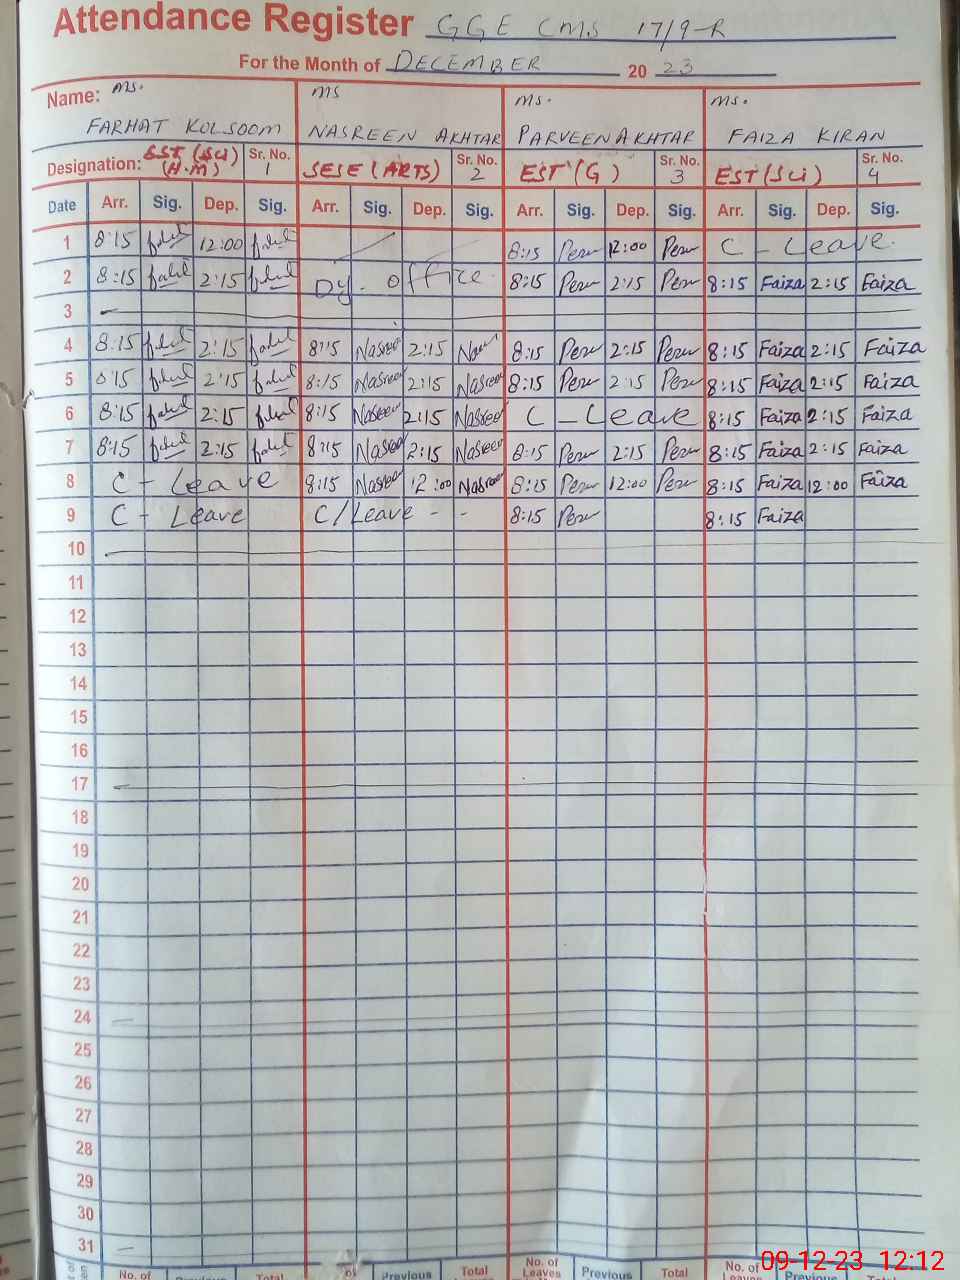 Attendance Register GGE CMS 17/9-R
For the Month of DECEMBER 20 23
Name: Ms. Ms Ms. Ms.
FARHAT KOLSOOM NASREEN AKHTAR PARVEEN AKHTAR FAIZA KIRAN
Designation: SST (Sci) (H.M) Sr. No. 1 SESE (ARTS) Sr. No. 2 EST (G) Sr. No. 3 EST (Sci) Sr. No. 4
Date Arr. Sig. Dep. Sig. Arr. Sig. Dep. Sig. Arr. Sig. Dep. Sig. Arr. Sig. Dep. Sig.
1 8:15 12:00 8:15 12:00 C - Leave.
2 8:15 2:15 Dy. office 8:15 2:15 8:15 Faiza 2:15 Faiza
3
4 8:15 2:15 8:15 Nasreen 2:15 8:15 2:15 8:15 Faiza 2:15 Faiza
5 8:15 2:15 8:15 Nasreen 2:15 Nasreen 8:15 2:15 8:15 Faiza 2:15 Faiza
6 8:15 2:15 8:15 Nasreen 2:15 Nasreen C - Leave 8:15 Faiza 2:15 Faiza
7 8:15 2:15 8:15 Nasreen 2:15 Nasreen 8:15 2:15 8:15 Faiza 2:15 Faiza
8 C - Leave 8:15 Nasreen 12:00 Nasreen 8:15 12:00 8:15 Faiza 12:00 Faiza
9 C - Leave C/Leave - - 8:15 8:15 Faiza
10
11
12
13
14
15
16
17
18
19
20
21
22
23
24
25
26
27
28
29
30
31
No. of Previous Total of Previous Total No. of Leaves Previous Total No. of Leaves Previous Total
09-12-23 12:12